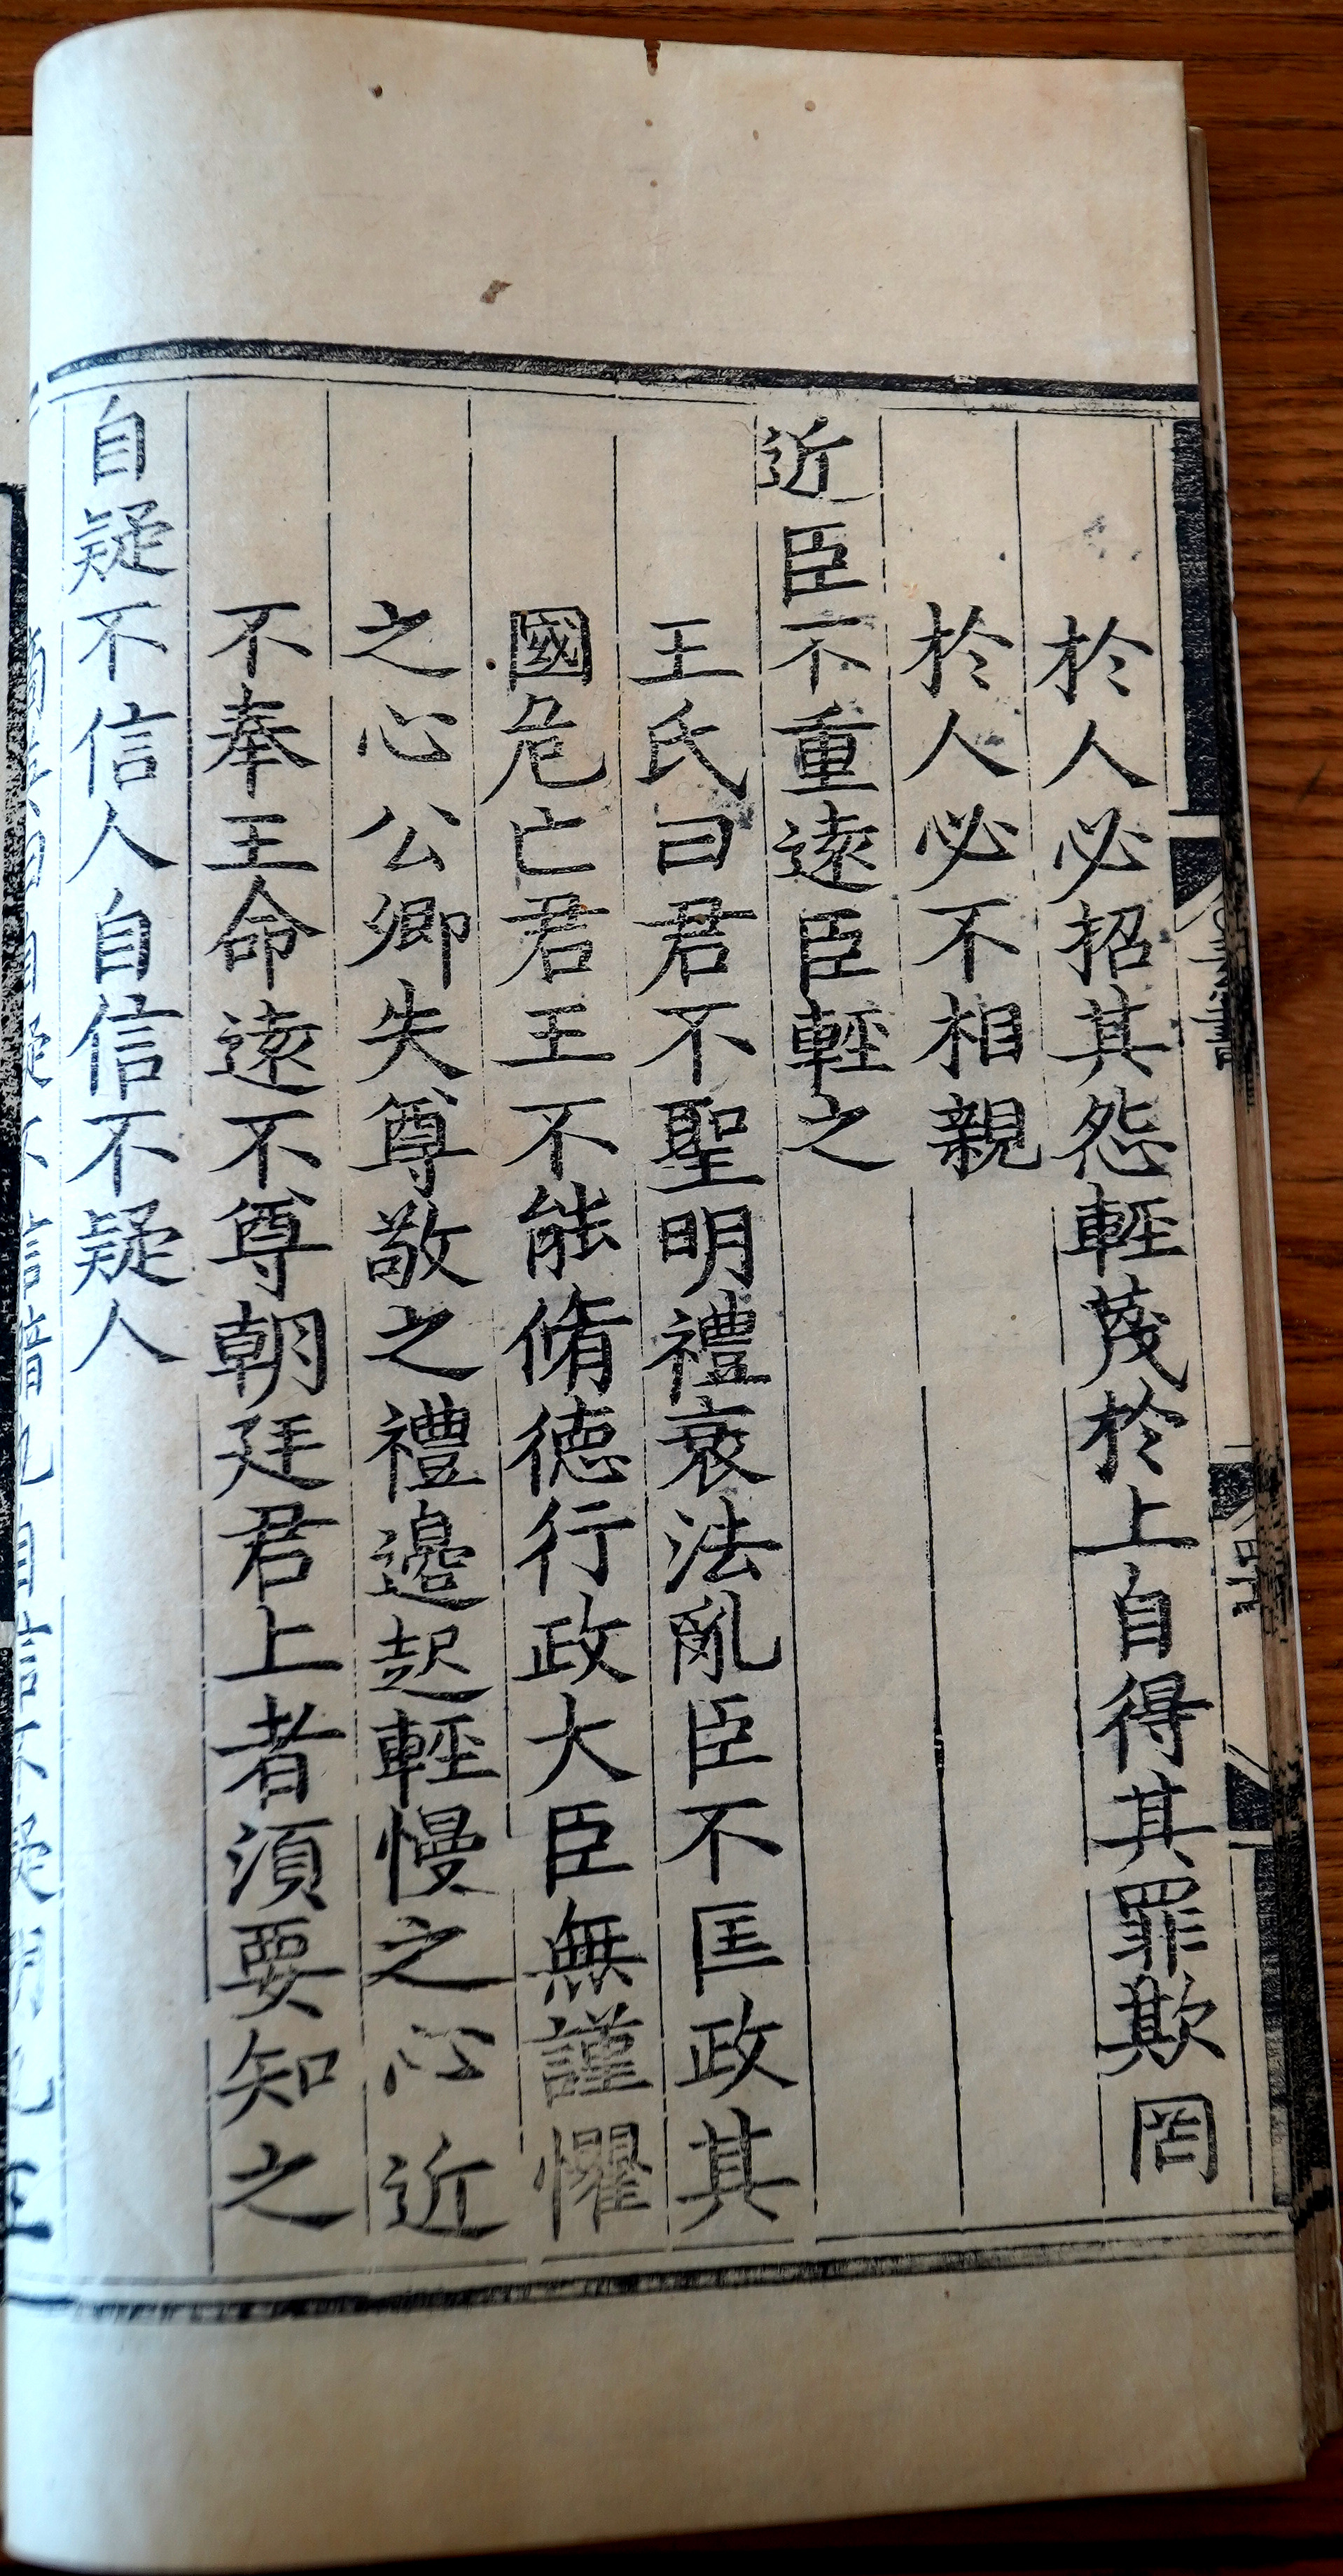 於人必招其怨輕蔑於上自得其罪欺罔
於人必不相親
近臣不重遠臣輕之
王氏曰君不聖明禮衰法亂臣不匡政其
國危亡君王不能脩德行政大臣無謹懼
之心公卿失尊敬之禮邊起輕慢之心近
不奉王命遠不尊朝廷君上者須要知之
自疑不信人自信不疑人